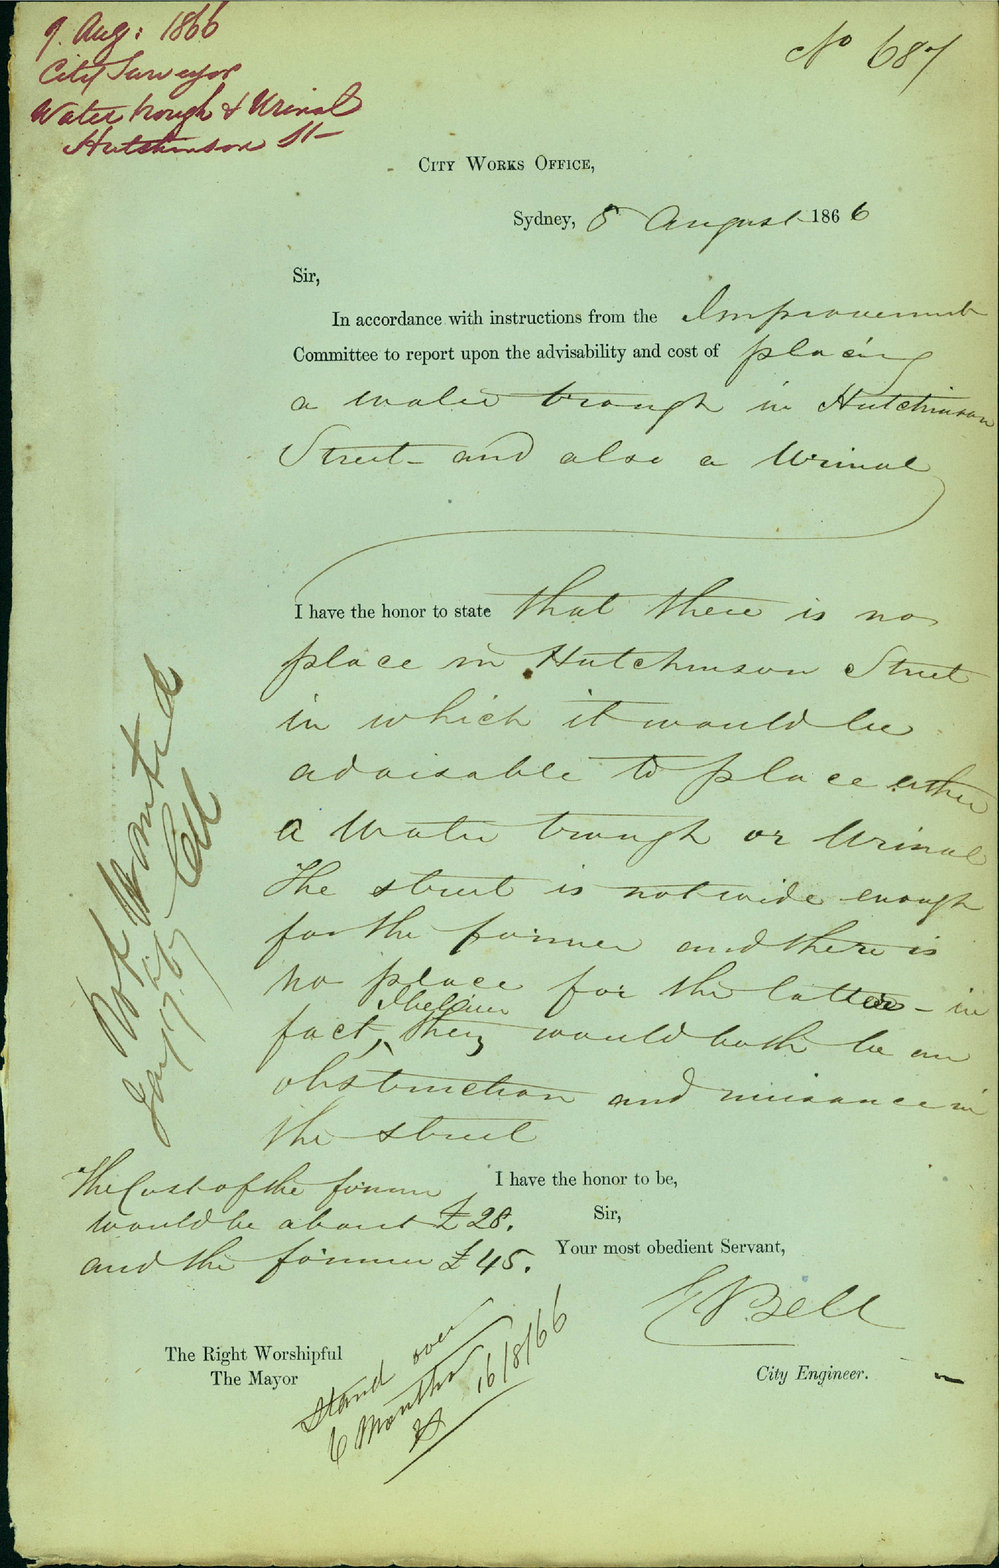 9. Aug: 1866
City Surveyor
Water trough & Urinal
Hutchinson St
No 687
CITY WORKS OFFICE,
Sydney, 8 August 1866
Sir,
In accordance with instructions from the Improvement
Committee to report upon the advisability and cost of placing
a water trough in Hutchinson
Street and also a Urinal
I have the honor to state that there is no
place in Hutchinson Street
in which it would be
advisable to place either
a Water trough or Urinal
The street is not wide enough
for the former and there is
no place for the latter - in
fact, I believe they would both be an
obstruction and nuisance in
the street
The Cost of the former
would be about £28.
and the former £45.
I have the honor to be,
Sir,
Your most obedient Servant,
E Bell
City Engineer.
The Right Worshipful
The Mayor
Stand over
6 Months
16/8/66
Not Wanted
Jany 17. 67